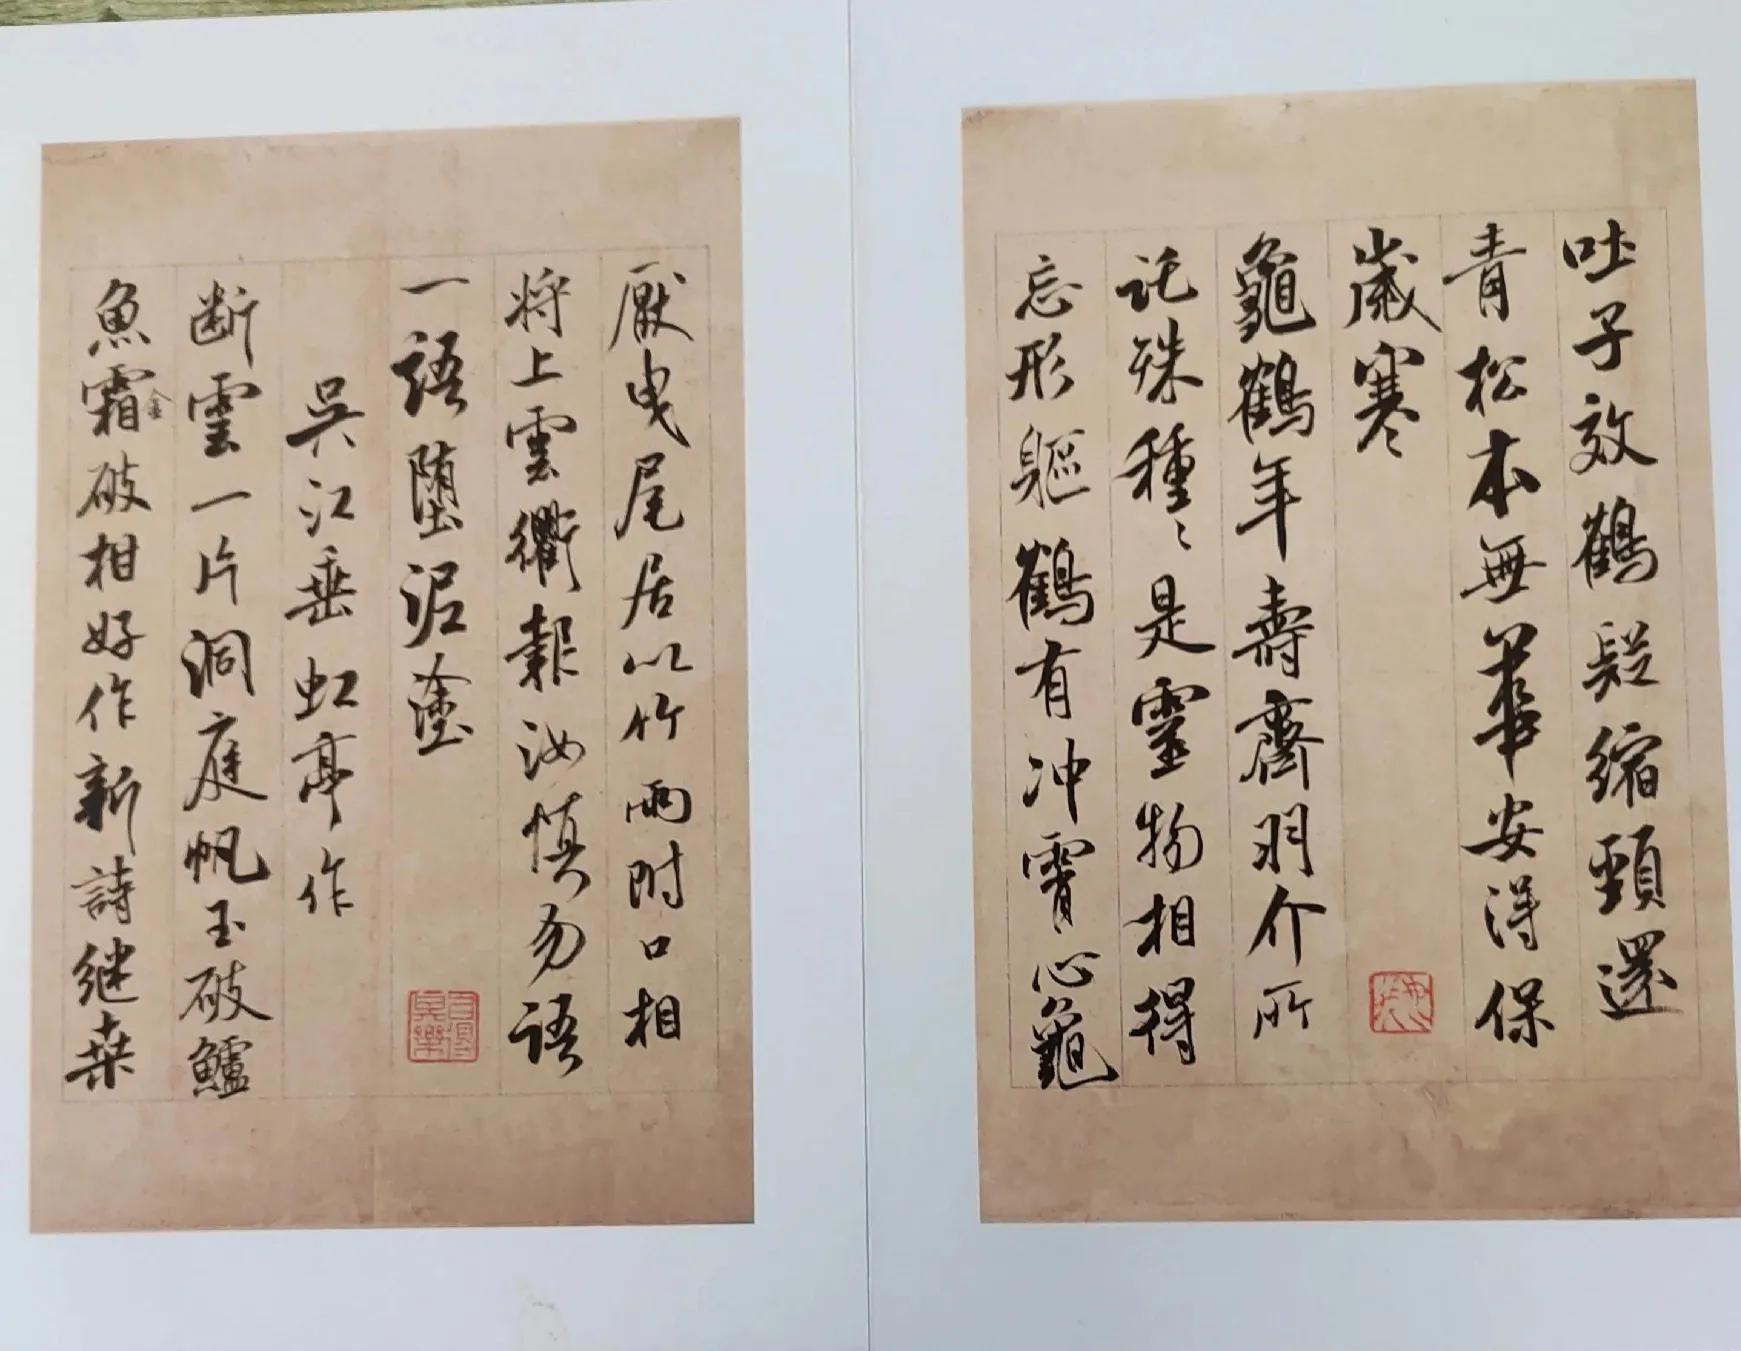 吐子效鶴疑縮頸還
青松本無華安得保
歲寒
龜鶴年壽齊羽介所
託殊種〻是靈物相得
忘形軀鶴有冲霄心龜
厭曳尾居以竹兩附口相
将上雲衢報汝慎勿語
一語堕泥塗
吳江垂虹亭作
断雲一片洞庭帆玉破鱸
魚霜破相好作新詩継桒
金